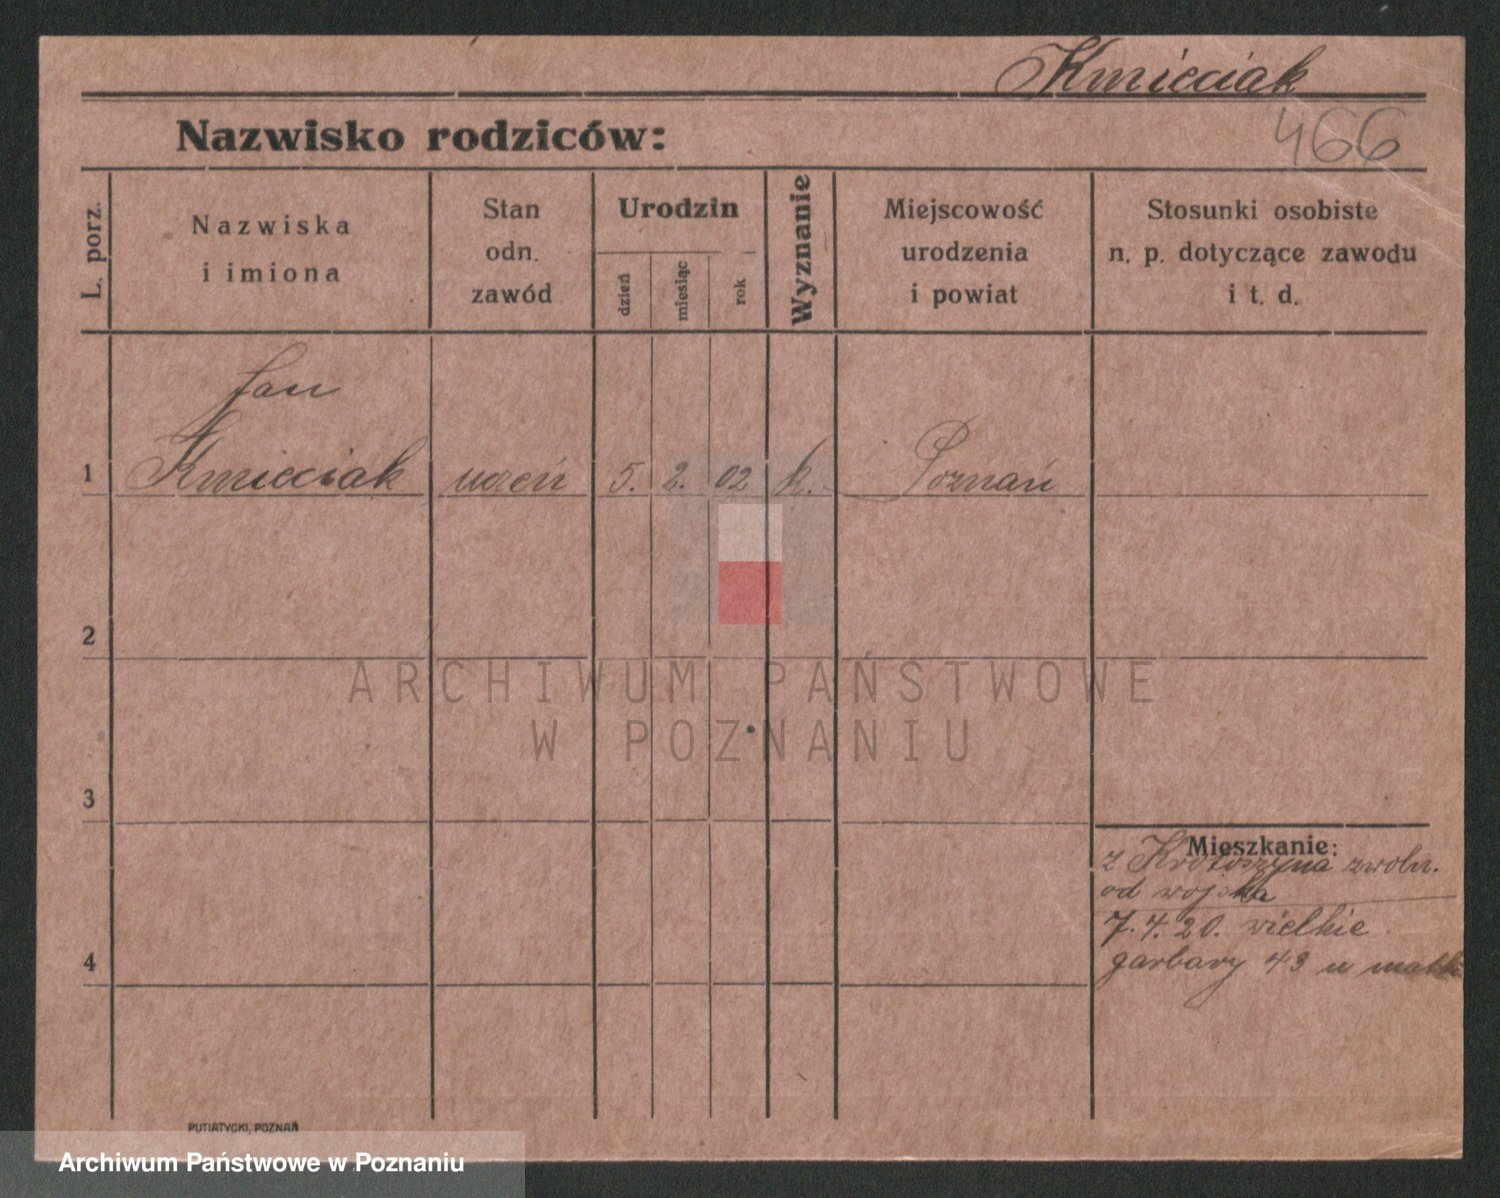 Kmieciak
466
Nazwisko rodziców:
L. porz.
Nazwiska
i imiona
Stan
odn.
zawód
Urodzin
dzień
miesiąc
rok
Wyznanie
Miejscowość
urodzenia
i powiat
Stosunki osobiste
n. p. dotyczące zawodu
i t. d.
Jan
1 Kmieciak uczeń 5. 2. 02 k. Poznań
2
ARCHIWUM PAŃSTWOWE
W POZNANIU
3
Mieszkanie:
z Krotoszyna zwoln.
od wojska
7.4.20. wielkie
garbary 43 u matki
4
PUTIATYCKI, POZNAŃ
Archiwum Państwowe w Poznaniu